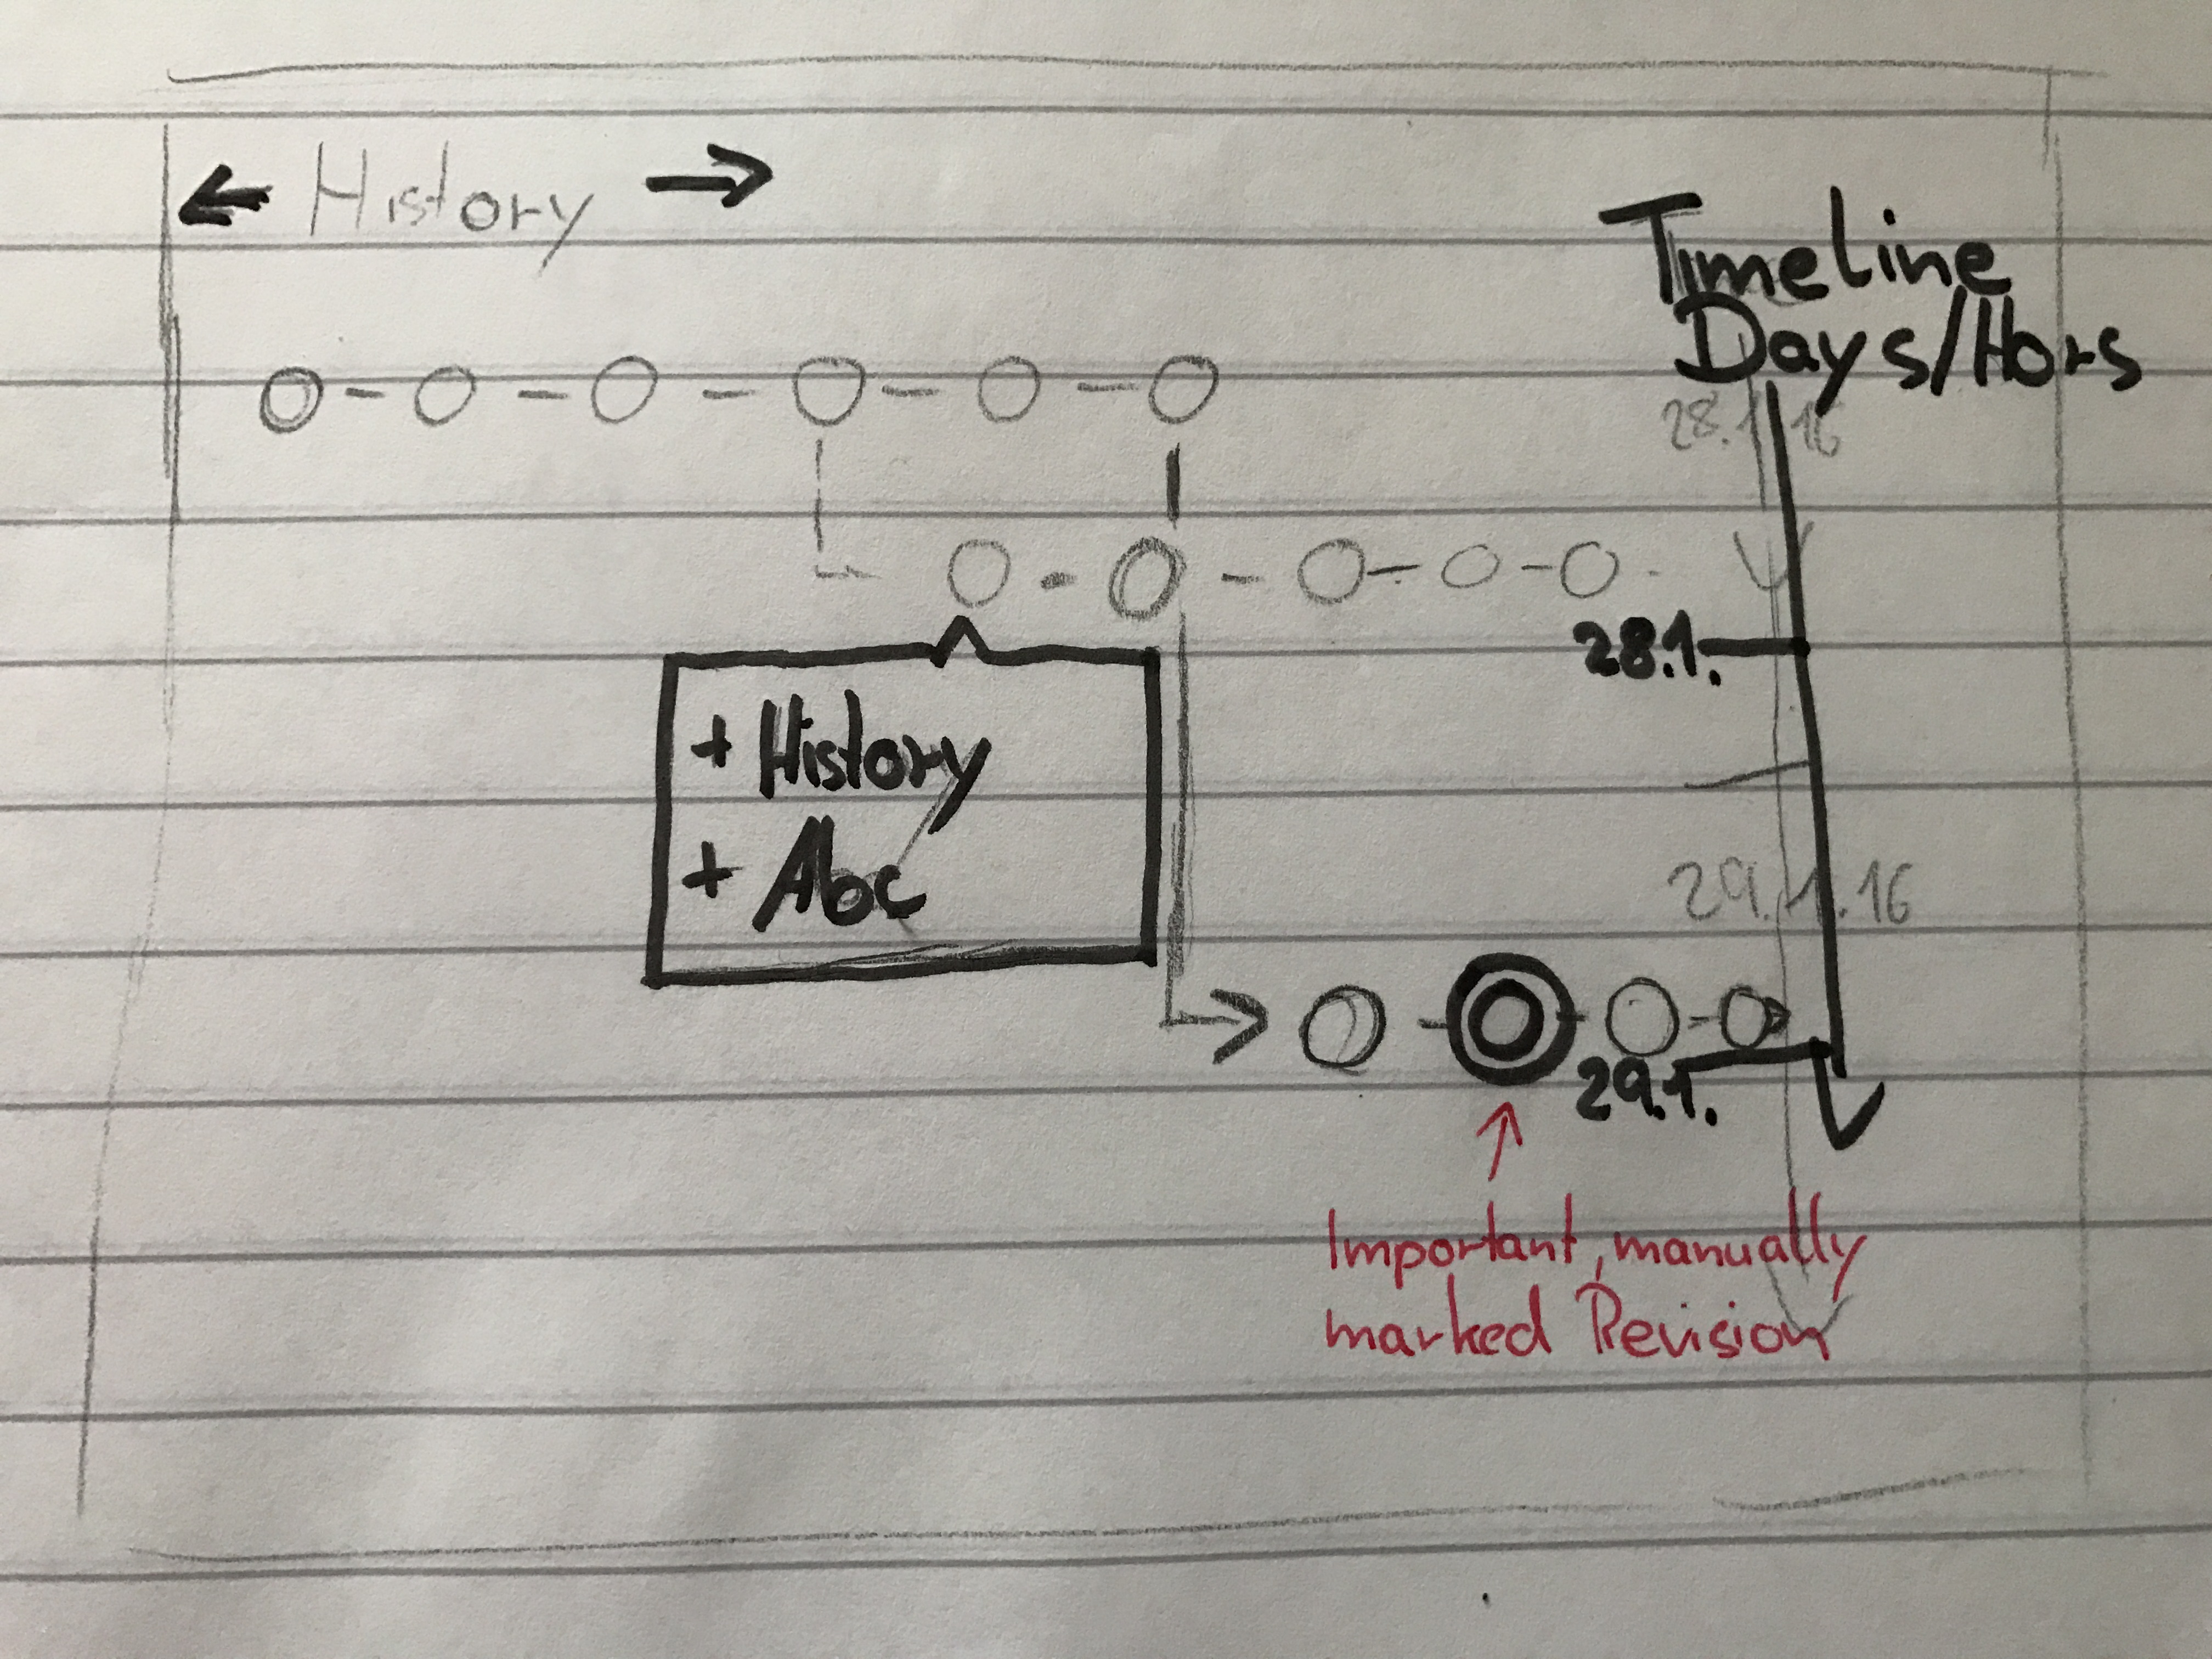 ← History →
Timeline
Days/Hors
28.1.16
28.1.
+ History
+ Abc
29.1.16
29.1.
Important, manually
marked Revision